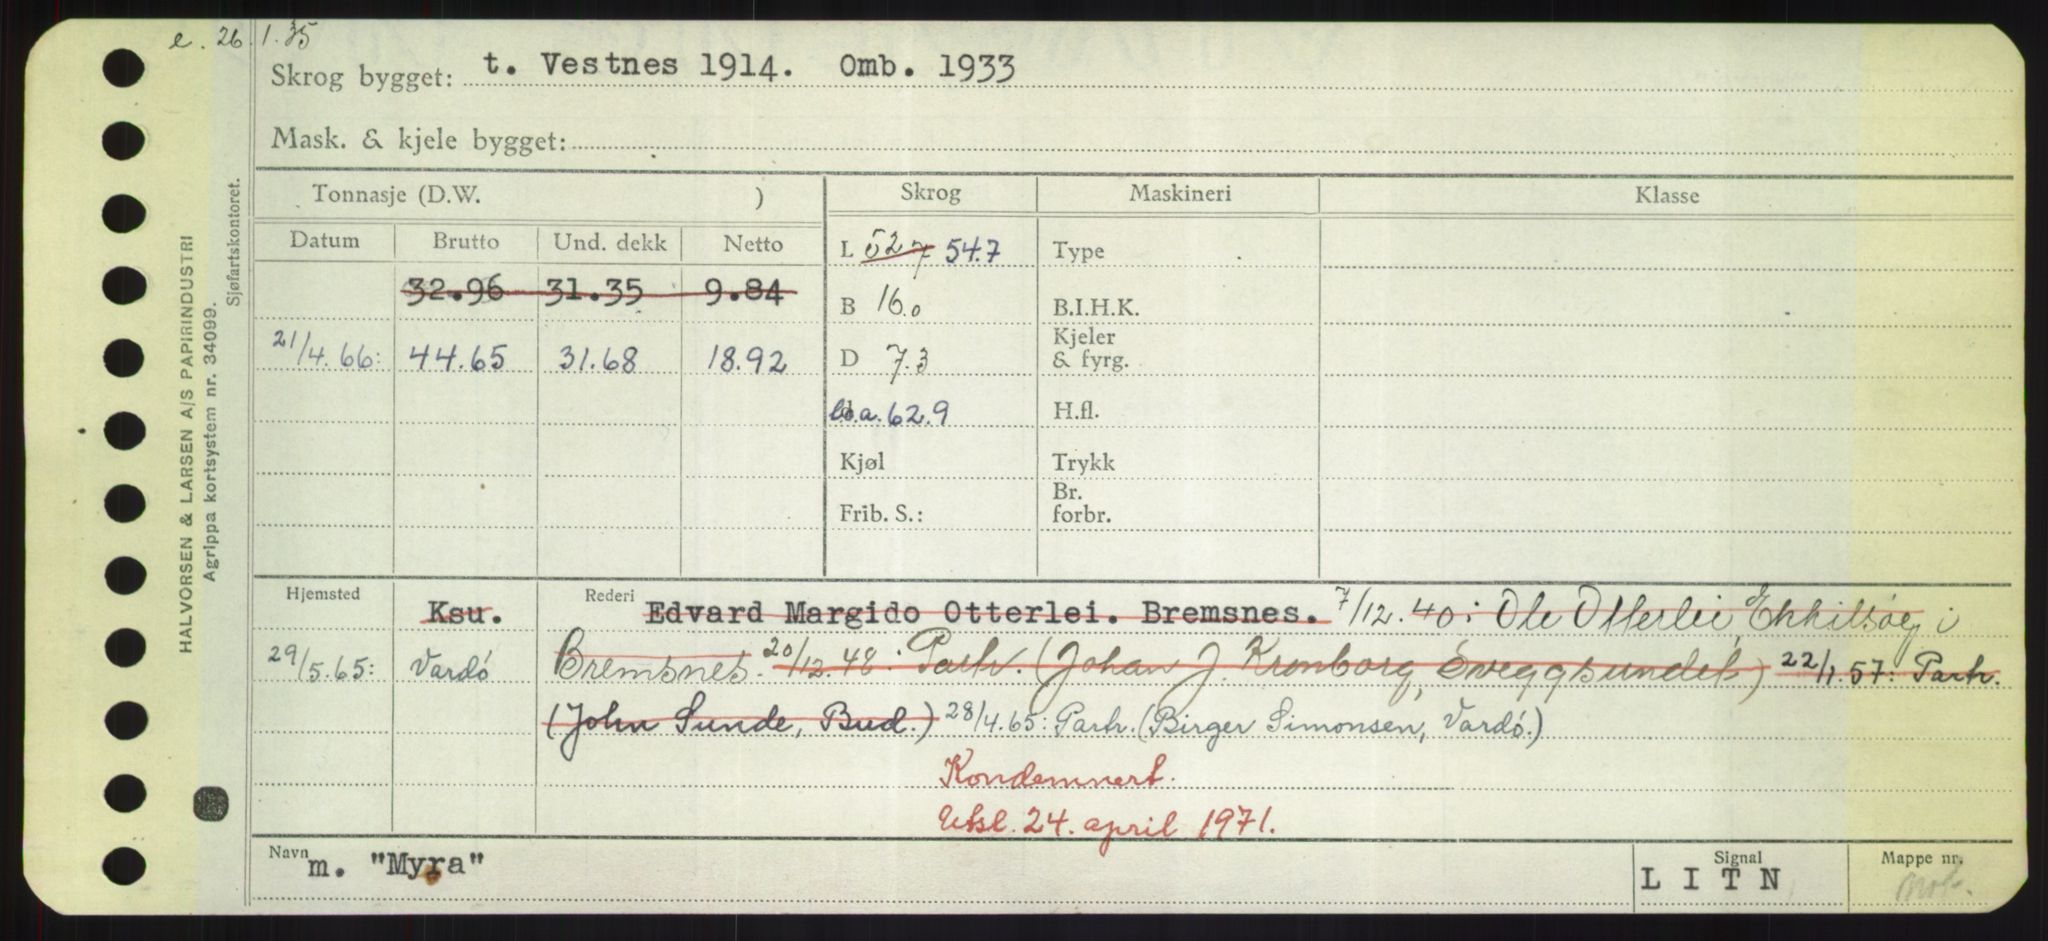 e. 26.1.35
Skrog bygget: t. Vestnes 1914. Omb. 1933
Mask. & kjele bygget:
HALVORSEN & LARSEN A/S PAPIRINDUSTRI
Agrippa kortsystem nr. 34099.
Sjøfartskontoret.
Tonnasje (D.W. ) Skrog Maskineri Klasse
Datum Brutto Und. dekk Netto
L 52.7 54.7 Type
32.96 31.35 9.84
B 16.0 B.I.H.K.
21/4.66: 44.65 31.68 18.92
D 7.3 Kjeler & fyrg.
l.o.a. 62.9 H.fl.
Kjøl Trykk
Frib. S.: Br. forbr.
Hjemsted Ksu. Rederi Edvard Margido Otterlei. Bremsnes. 7/12.40: Ole Otterlei Ekkilsøy i
29/5.65: Vardö Bremsnes. 20/12.48: Partr. (Johan J. Kronborg, Sveggsundet) 22/1.57: Partr.
(John Sunde, Bud.) 28/4.65: Partr. (Birger Simonsen, Vardö.)
Kondemnert.
Utsl. 24. april 1971.
Navn m. "Myra" Signal L I T N Mappe nr.